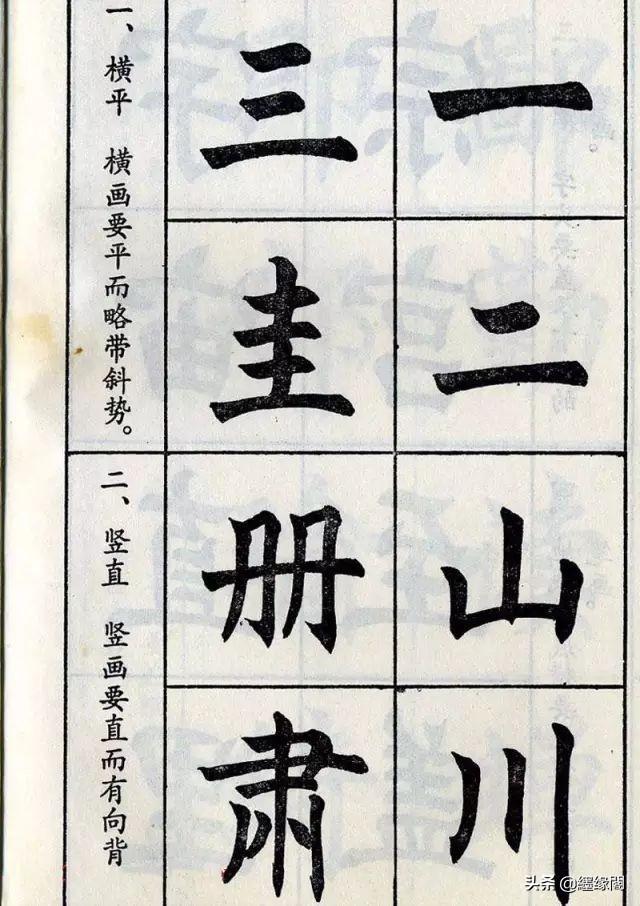 一二山川
三圭册肃
一、横平 横画要平而略带斜势。
二、竖直 竖画要直而有向背
头条 @纆缘阁